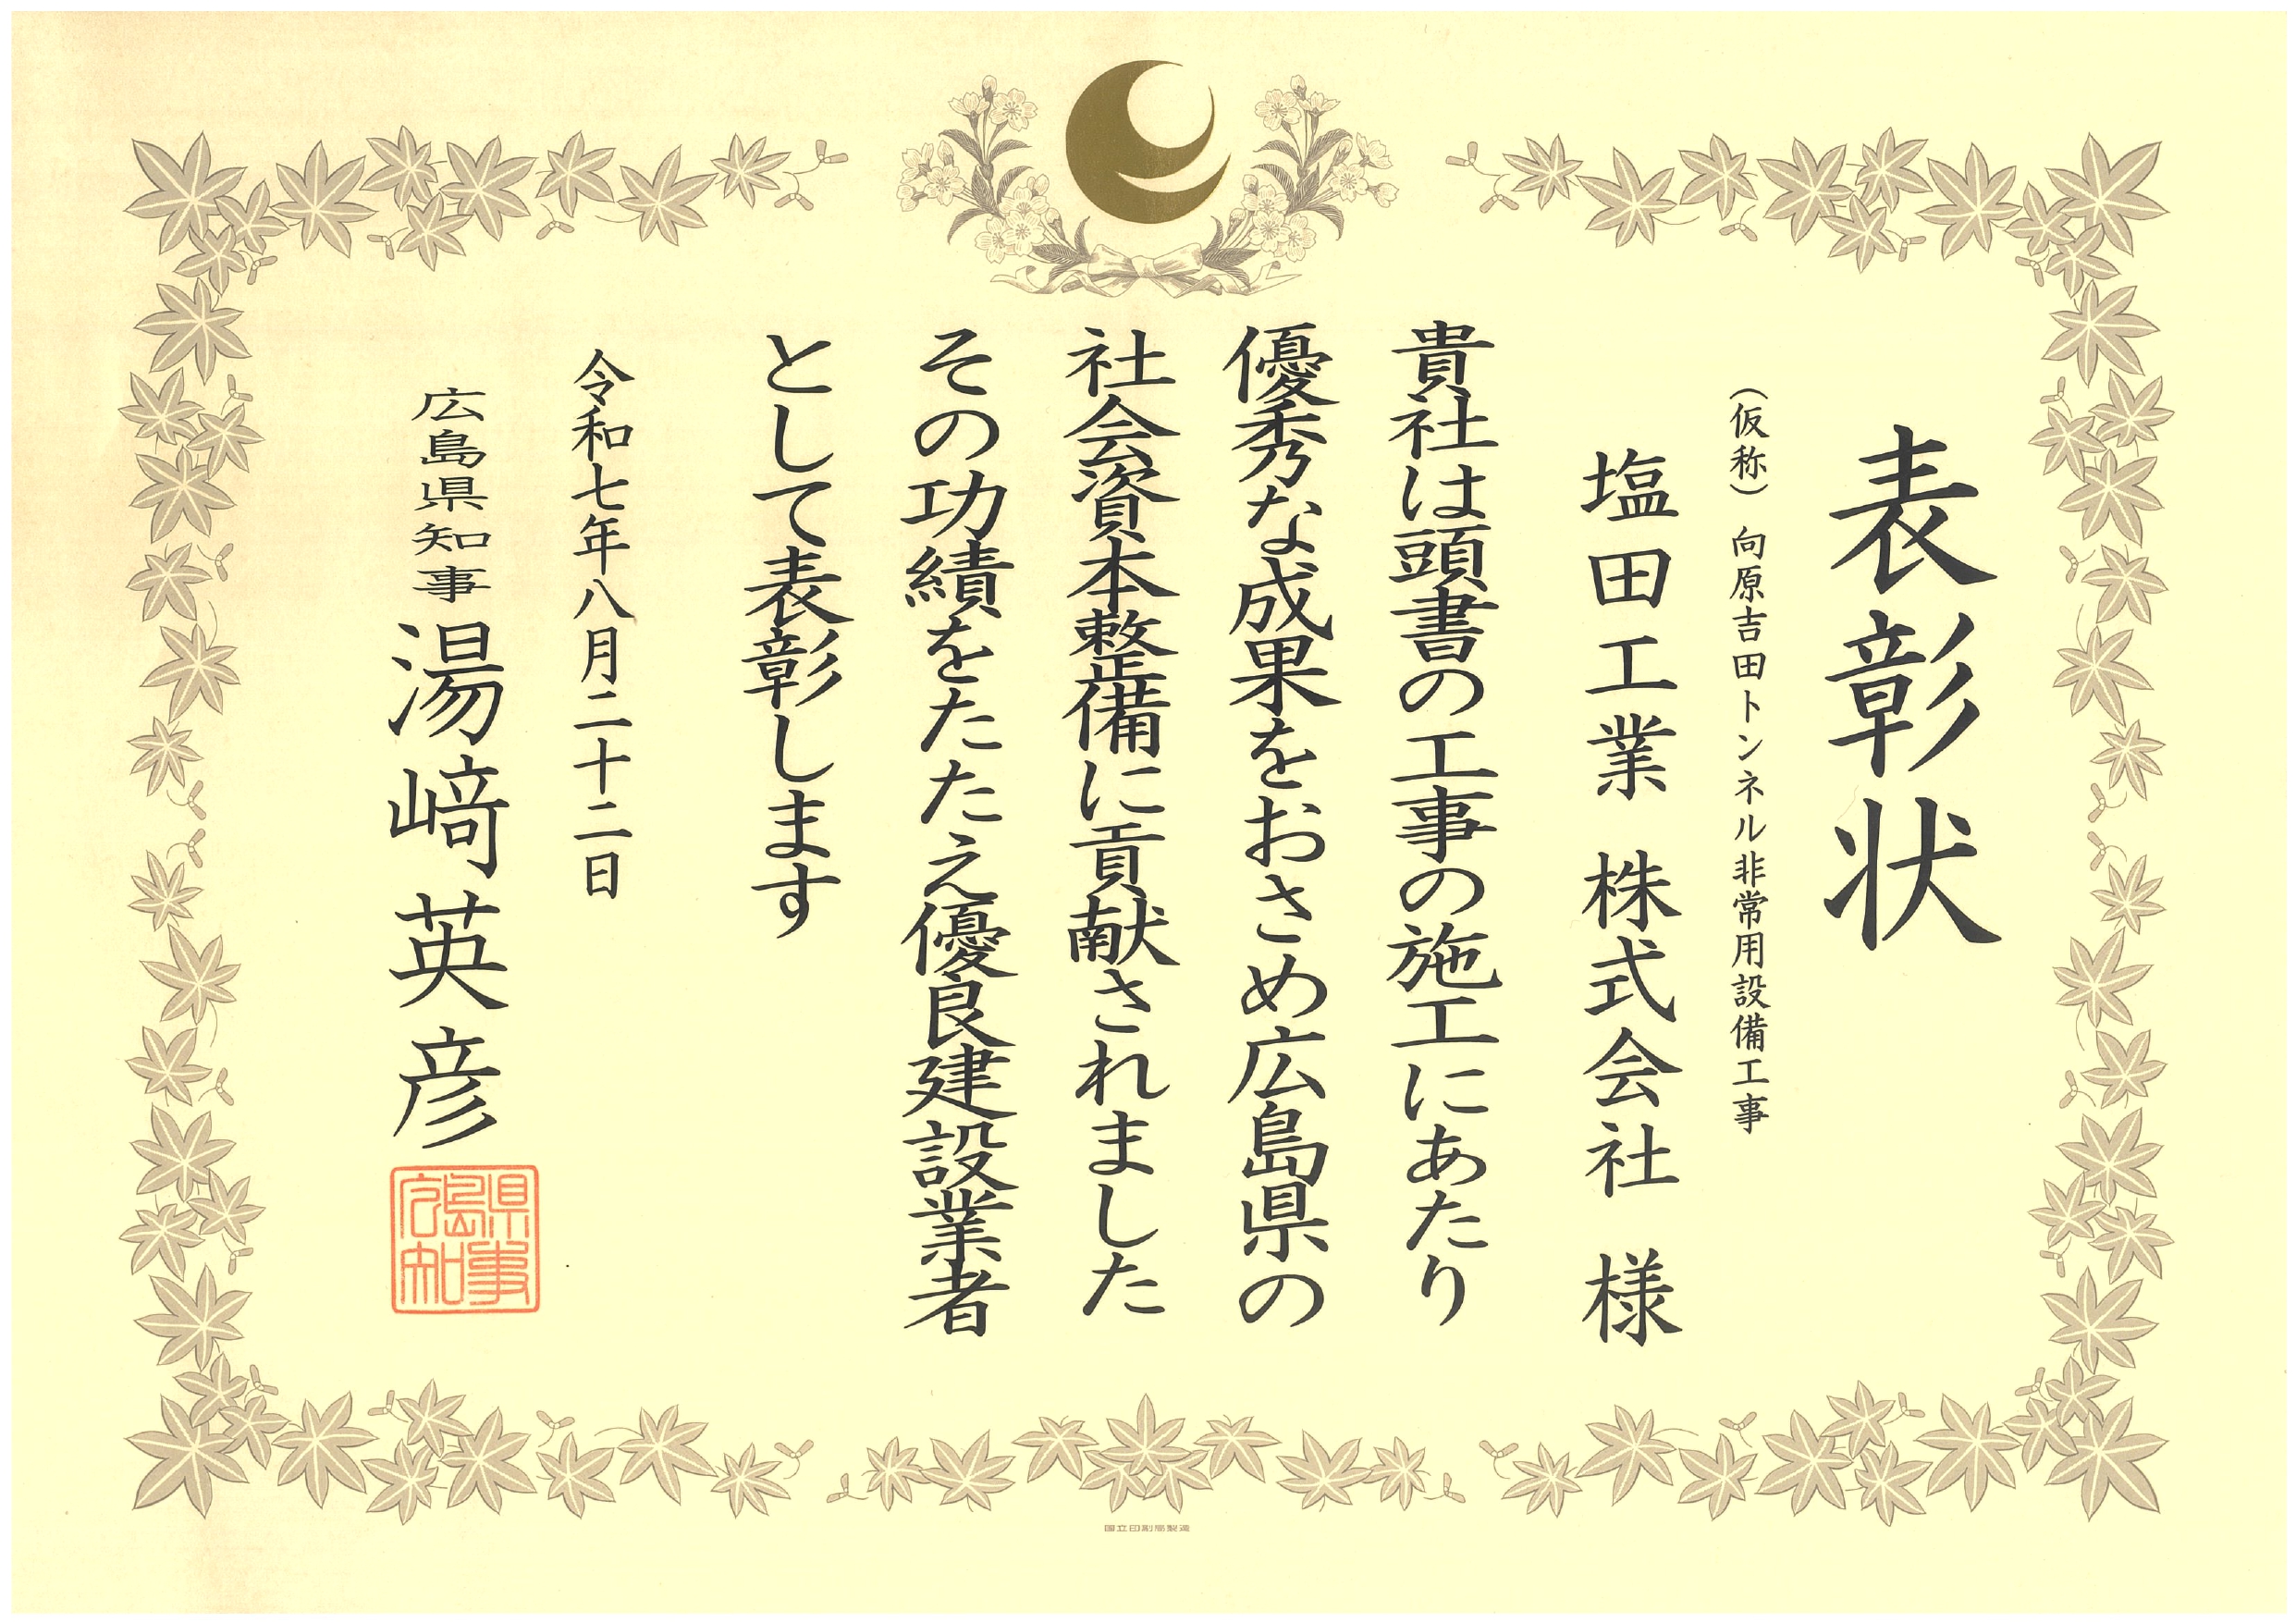 表彰状
（仮称）　向原吉田トンネル非常用設備工事
塩田工業　株式会社　様
貴社は頭書の工事の施工にあたり
優秀な成果をおさめ広島県の
社会資本整備に貢献されました
その功績をたたえ優良建設業者
として表彰します
令和七年八月二十二日
広島県知事　湯﨑英彦
広島県知事
国立印刷局製造